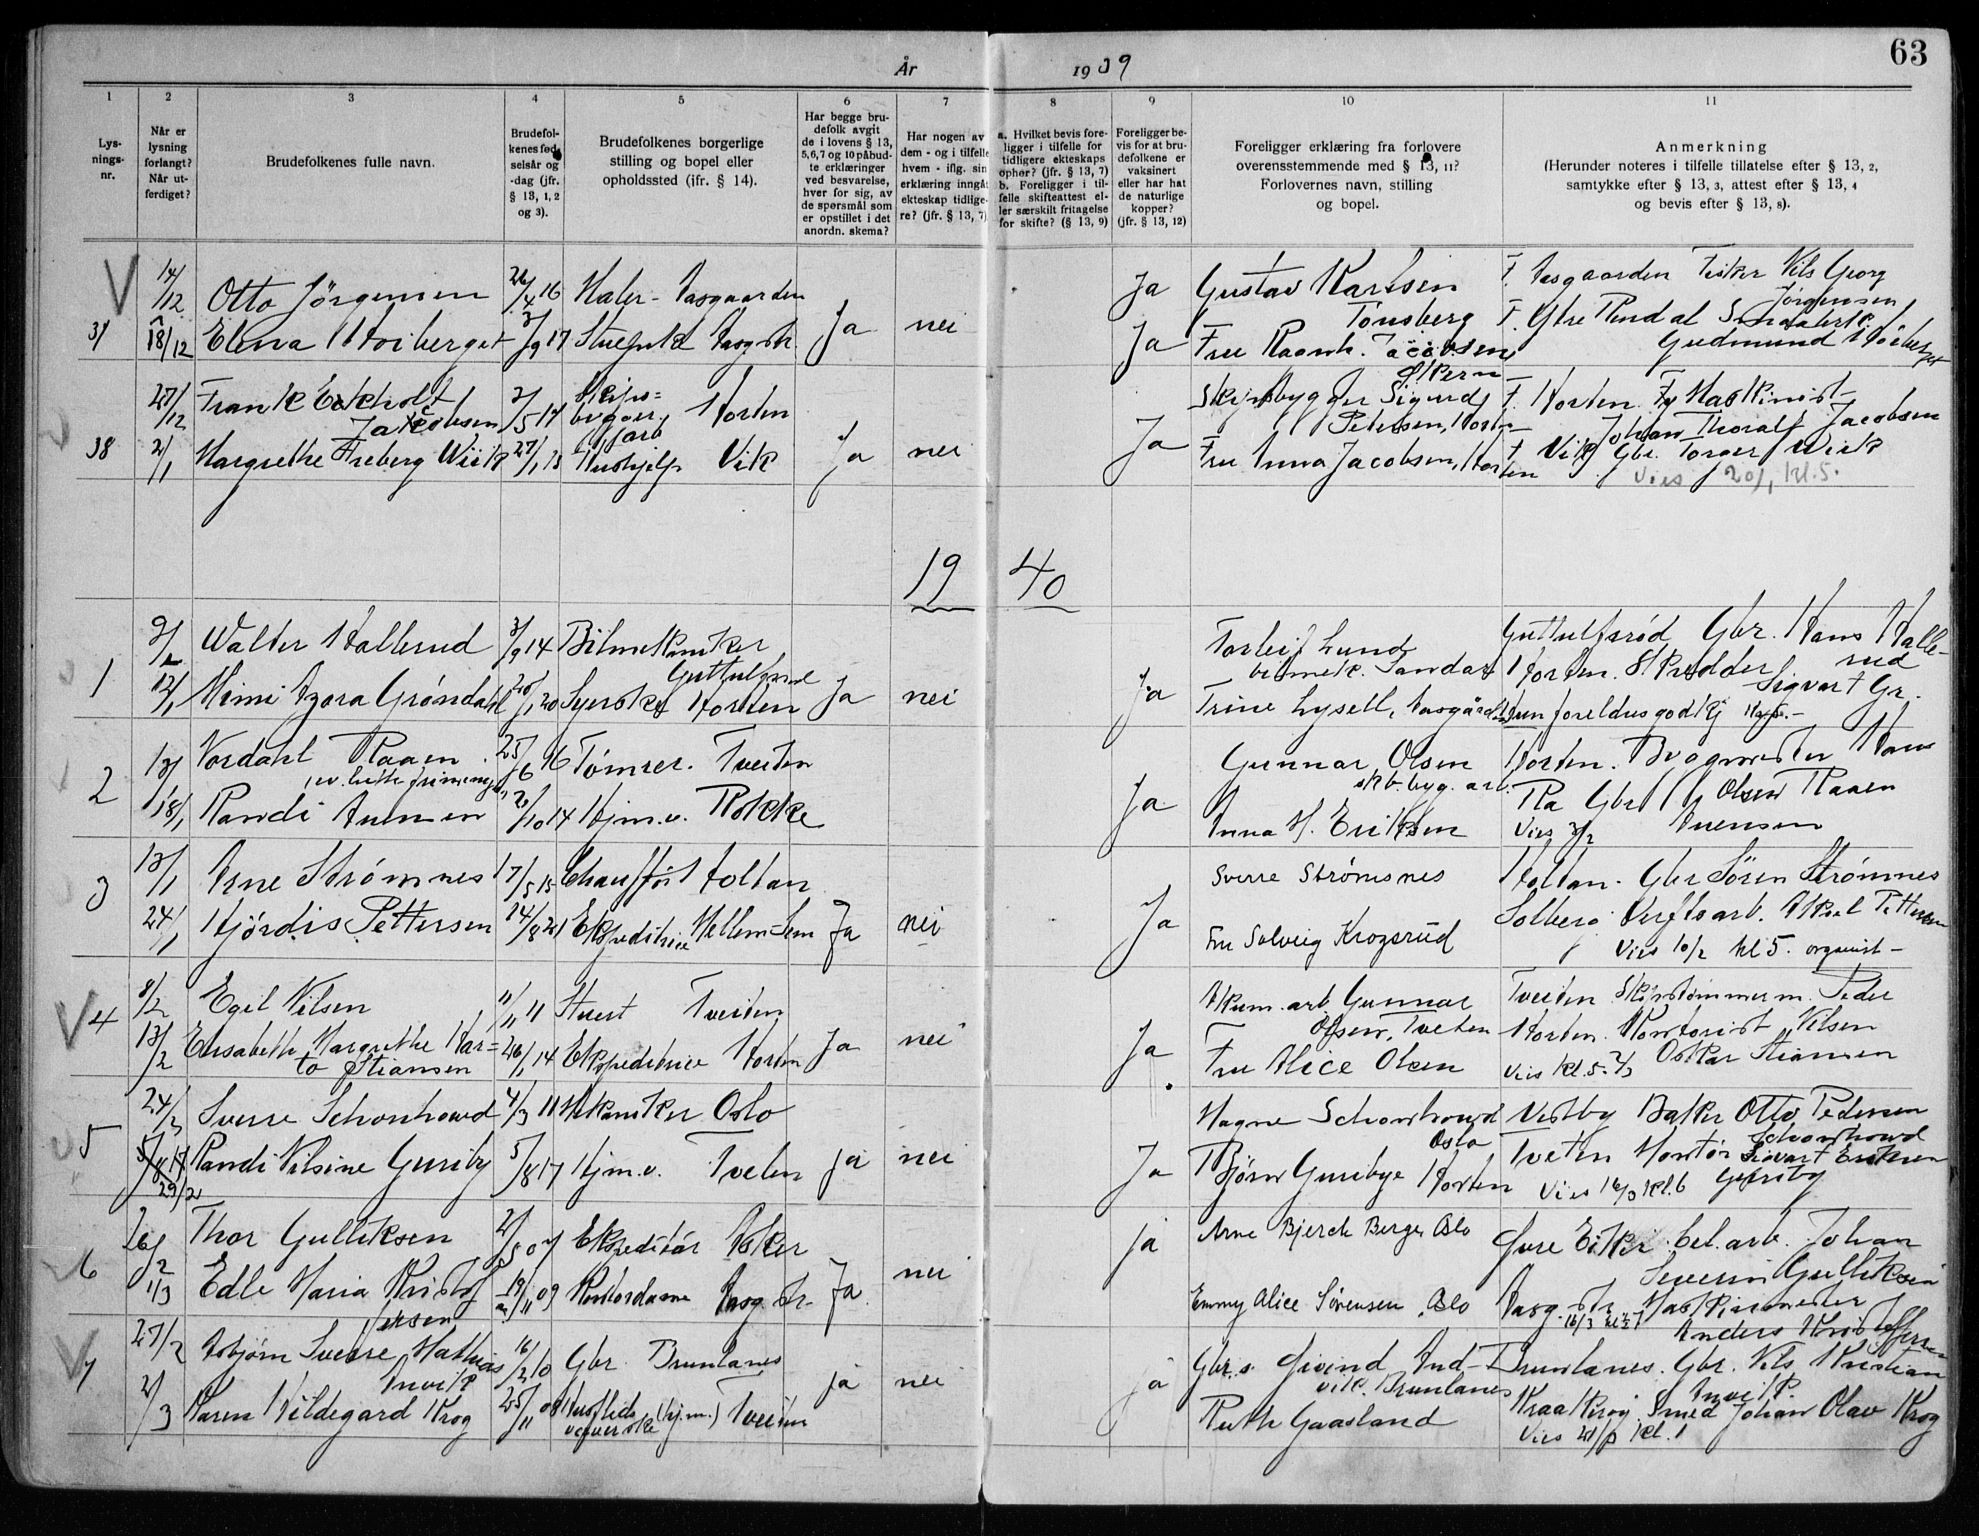 63
År 1939
1 2 3 4 5 6 7 8 9 10 11
Lys-
nings-
nr.
Når er
lysning
forlangt?
Når ut-
ferdiget?
Brudefolkenes fulle navn.
Brudefol-
kenes fød-
selsår og
-dag (jfr.
§ 13, 1, 2
og 3).
Brudefolkenes borgerlige
stilling og bopel eller
opholdssted (jfr. § 14).
Har begge bru-
defolk avgit
de i lovens § 13,
5, 6, 7 og 10 påbud-
te erklæringer
ved besvarelse,
hver for sig, av
de spørsmål som
er opstillet i det
anordn. skema?
Har nogen av
dem - og i tilfelle
hvem - iflg. sin
erklæring inngåt
ekteskap tidlige-
re? (jfr. § 13, 7)
a. Hvilket bevis fore-
ligger i tilfelle for
tidligere ekteskaps
ophør? (jfr. § 13, 7)
b. Foreligger i til-
felle skifteattest el-
ler særskilt fritagelse
for skifte? (§ 13, 9)
Foreligger be-
vis for at bru-
defolkene er
vaksinert
eller har hat
de naturlige
kopper?
(jfr. § 13, 12)
Foreligger erklæring fra forlovere
overensstemmende med § 13, 11?
Forlovernes navn, stilling
og bopel.
Anmerkning
(Herunder noteres i tilfelle tillatelse efter § 13, 2,
samtykke efter § 13, 3, attest efter § 13, 4
og bevis efter § 13, 8).
V 14/12 Otto Jörgensen 26/4 16 Maler - Aasgaarden Ja Gustav Karlsen F. Aasgaarden Fisker Nils Georg
Tønsberg Jörgensen
18/12 Elena Høiberget 3/9 17 Ja nei Ja Fru Ragnh. Jacobsen
Gudmund Høiberget
27/12 Frank Eckholt 2/5 17 Skips=
Jacobsen bygger Horten Skipsbygger Sigurd F. Horten Fy Maskinist
arb Petersen, Horten Johan Thoralf Jacobsen
38 2/1 Margrethe Freberg Wiik 27/1 13 Hushjelp Vik Ja nei Ja Fru Anna Jacobsen, Horten F Vik Gbr. Torger Wiik
Vies 20/1 kl. 5.
19 40
9/1 Walter Hallerud 3/9 14 Bilmekaniker Torleif Lund Guttulfsrød Gbr. Hans Halle-
Guttulfsrød bilmek. Sandar Horten. Skrædder rud
1 12/1 Mimi Azora Grøndahl 20/1 20 Syerske Horten Ja nei Ja Trine Lysell, Aasgården Sigvart Gr.
2 13/1 Nordahl Raaen 25/6 16 Tømrer. Tveiten Gunnar Olsen Horten. Byggmester Hans
skb.byg. arb. Olsen Raaen
18/1 Randi Aunsen 2/10 14 Hjm.v. Rokke Ja Anna M. Eriksen Ra Gbr
Vies 3/2
3 13/1 Arne Strømnes 17/5 15 Chauffør Holtan Sverre Strømsnes Holtan. Gbr Søren Strømnes
24/1 Hjördis Pettersen 14/8 21 Ekspeditrice Mellem-Sem Ja nei Ja Fru Solveig Krogsrud Solberg Verftsarb. Aksel Pettersen
Vies 10/2 kl 5. organist -
V 4 8/2 Egil Nilsen 11/11 11 Stuert Tveiten Akum. arb. Gunnar Tveiten Skipstømmerm. Peder
Olsen, Tveten Nilsen
13/2 Elisabeth Margrethe Har= 26/1 14 Ekspeditrice Horten Ja nei Ja Fru Alice Olsen Horten. Kontorist
to Stiansen Vies kl. 5. 2/3 Oskar Stiansen
24/2 Sverre Schonhowd 4/3 11 Mekaniker Oslo Magne Schonhowd Vestby Baker Otto Pedersen
Oslo Schonhowd
5 5/8 17 Randi Nilsine Guriby 5/8 17 Hjm.v. Tveten ja nei Ja Bjørn Guribye Horten Tveten Montør Sigvart Eriksen
29/2 Vies 16/3 kl. 6 Guriby
6 26/2 Thor Gulliksen 2/5 07 Ekspeditør Asker ja Arne Bjerch Berge Oslo Øvre Eiker Cel.arb. Johan
Severin Gulliksen
1/3 Edle Maria Kristof 19/11 09 Kontordame Aasg.str. Ja nei Emmy Alice Sørensen, Oslo Aasg. str. Maskinmester
fersen 16/3 kl ½7 Anders Kristoffersen
V 7 27/2 Asbjörn Sverre Mathias 16/2 10 Gbr. Brunlanes ja nei ja Gbr.s. Øivind And- Brunlanes. Gbr. Nils Kristian
Anvik vik. Brunlanes Anvik.
2/3 Karen Hildegard Krog 25/11 08 Husflids (hj.m.) Tveiten Ruth Gaasland Kraakkrøy. Smed Johan Olav Krog
veverske Vies kl. 1